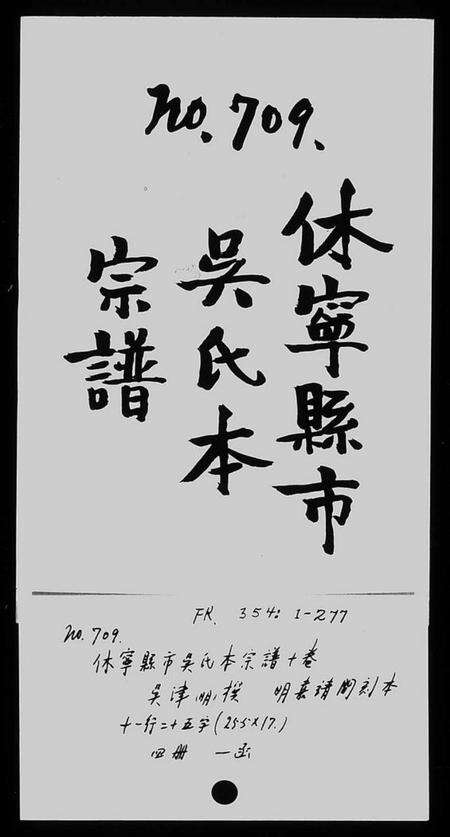 no. 709.
休寧縣市
吳氏本
宗譜
FR. 354: 1-277
no. 709.
休寧縣市吳氏本宗譜十卷
吳津明撰 明嘉靖間刻本
十一行二十五字(25.5×17.)
四册 一函